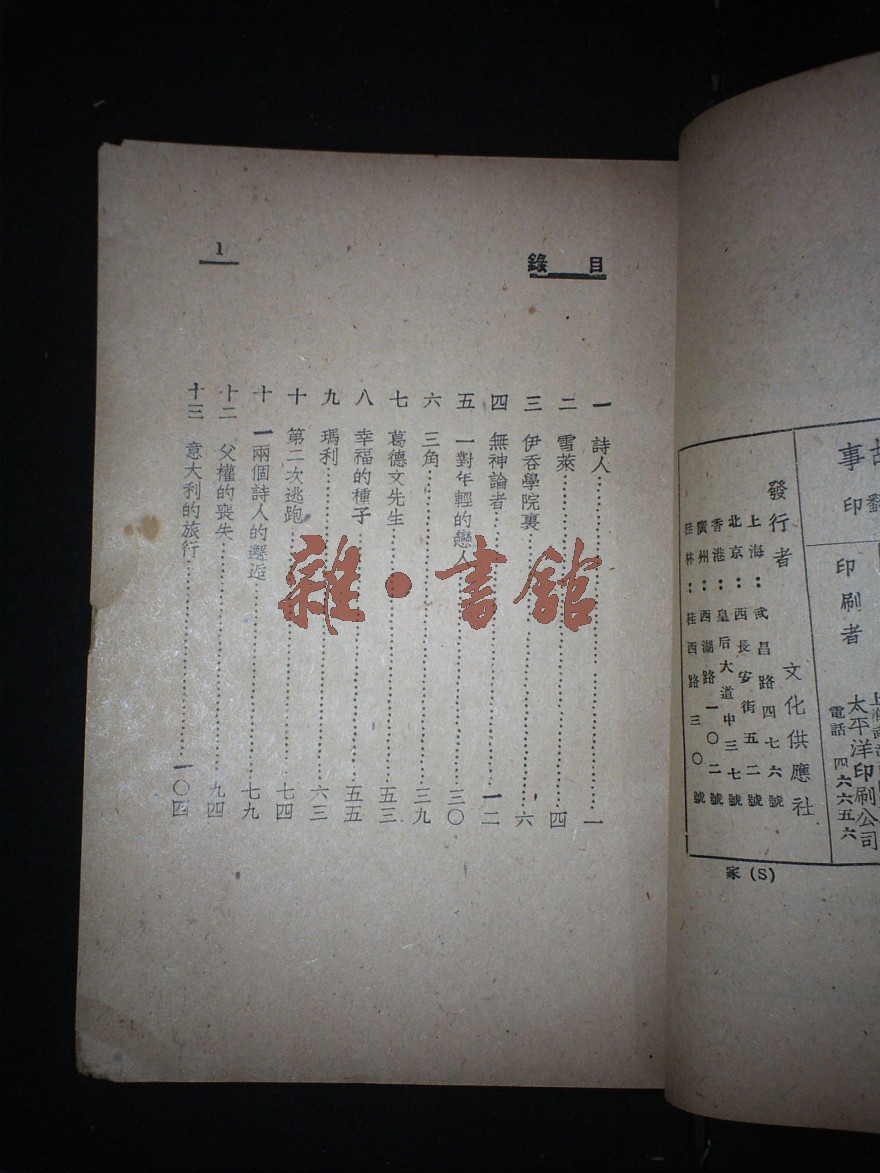 事
印
印刷者
太平洋印刷公司
電話 四六六五六
發行者
文化供應社
上海：武昌路四七六號
北京：西長安街五二號
香港：皇后大道中三七號
廣州：西湖路一〇二號
桂林：桂西路三〇號
家 (S)
目錄
1
一 詩人……一
二 雪萊……四
三 伊吞學院裏……六
四 無神論者……一二
五 一對年輕的戀人……三〇
六 三角……三九
七 葛德文先生……五三
八 幸福的種子……五五
九 瑪利……六三
十 第二次逃跑……七四
十一 兩個詩人的邂逅……七九
十二 父權的喪失……九四
十三 意大利的旅行……一〇四
雜·書館